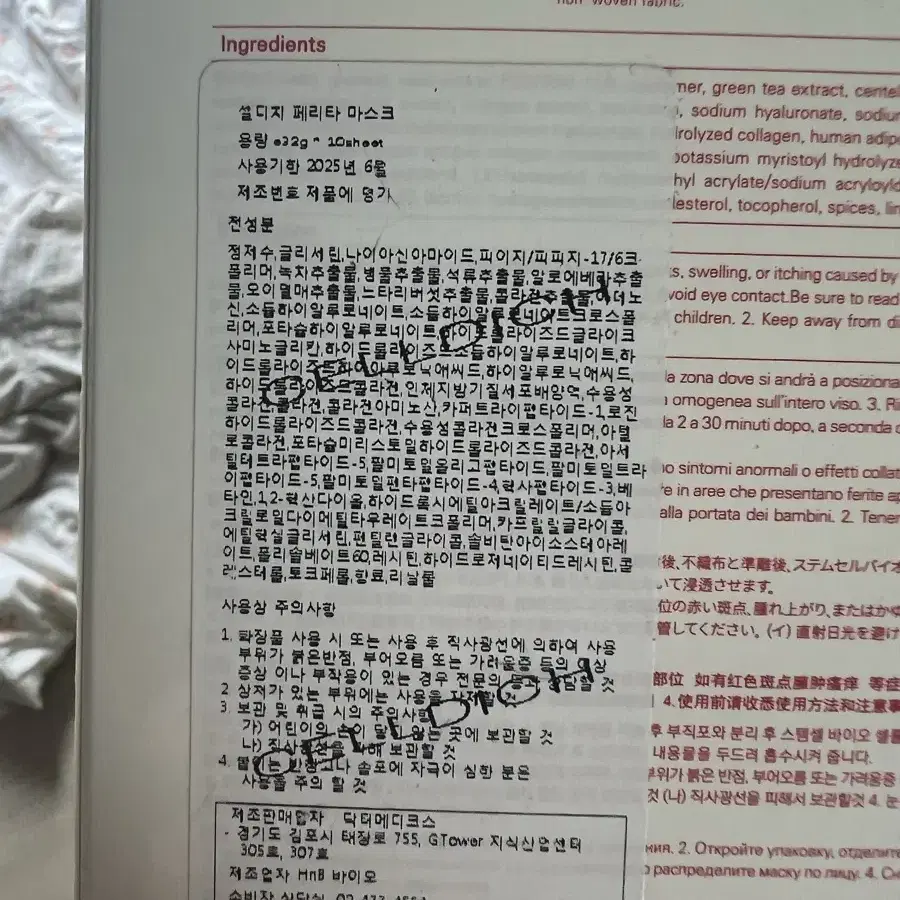 non-woven fabric.
Ingredients
설디지 페리타 마스크
용량 e32g * 10sheet
사용기한 2025년 6월
제조번호 제품에 명기
전성분
정제수,글리세린,나이아신아마이드,피이지/피피지-17/6코
폴리머,녹차추출물,병풀추출물,석류추출물,알로에베라추출
물,오이열매추출물,느타리버섯추출물,
신,소듐하이알루로네이트,소듐하이알루로네이트크로스폴
리머,포타슘하이알루로네이트,하이드롤라이즈드글라이코
사미노글리칸,하이드롤라이즈드소듐하이알루로네이트,하
이드롤라이즈드하이알루로닉애씨드,하이알루로닉애씨드,
하이드롤라이즈드콜라겐,인체지방기질세포배양액,수용성
콜라겐,콜라겐,콜라겐아미노산,카퍼트라이펩타이드-1,로진
하이드롤라이즈드콜라겐,수용성콜라겐크로스폴리머,아텔
로콜라겐,포타슘미리스토일하이드롤라이즈드콜라겐,아세
틸테트라펩타이드-5,팔미토일올리고펩타이드,팔미토일트라
이펩타이드-5,팔미토일펜타펩타이드-4,헥사펩타이드-3,베
타인,1,2-헥산다이올,하이드록시에틸아크릴레이트/소듐아
크릴로일다이메틸타우레이트코폴리머,카프릴릴글라이콜,
에틸헥실글리세린,펜틸렌글라이콜,솔비탄아이소스테아레
이트,폴리솔베이트60,레시틴,하이드로제네이티드레시틴,콜
레스테롤,토코페롤,향료,리날룰
사용상 주의사항
1. 화장품 사용 시 또는 사용 후 직사광선에 의하여 사용
부위가 붉은반점, 부어오름 또는 가려움증 등의 이상
증상 이나 부작용이 있는 경우 전문의 등과 상담할 것
2 상처가 있는 부위에는 사용을 자제할 것
3. 보관 및 취급 시의 주의사항
가) 어린이의 손이 닿지 않는 곳에 보관할 것
나) 직사광선을 피해 보관할 것
4. 반점이나 솔포에 자극이 심한 분은
사용을 주의 할 것
CELLDIGM
CELLDIGM
제조판매업자 닥터메디코스
경기도 김포시 태장로 755, GTower 지식산업센터
305호, 307호
제조업자 HnB 바이오
소비자 상담실
mer, green tea extract,
, sodium hyaluronate,
drolyzed collagen, human
potassium myristoyl
hyl acrylate/sodium
lesterol, tocopherol, spices,
s, swelling, or itching caused by
void eye contact.Be sure to read
children. 2. Keep away from
la zona dove si andrà a
omogenea sull'intero viso. 3.
la 2 a 30 minuti dopo, a seconda
no sintomi anormali o effetti
re in aree che presentano ferite
alla portata dei bambini. 2.
後、不織布と準離後、ステムセルバイオ
いて浸透させます。
位の赤い斑点、腫れ上がり、またはかゆ
管してください。(イ) 直射日光を避け
部位 如有红色斑点臃肿瘙痒 等症
4.使用前请收悉使用方法和注意事
후 부직포와 분리 후 스템셀 바이오 셀룰
내용물을 두드려 흡수시켜 줍니다.
부위가 붉은 반점, 부어오름 또는 가려움증
것 (나) 직사광선을 피해서 보관할것 4. 눈
ния. 2. Откройте упаковку,
распределите маску по лицу. 4.